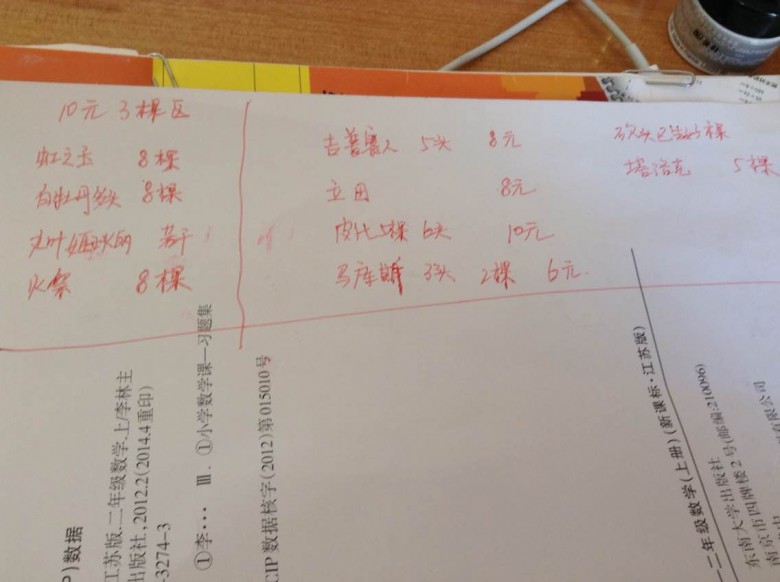 10元 3棵区
虹之玉 8棵
白牡丹多头 8棵
若干
火祭 8棵
吉普赛人 5头 8元
立田 8元
皮化5棵 6头 10元
马库 3头 2棵 6元.
砍头已生根3棵
塔洛克 5棵
P)数据
江苏版.二年级数学.上/李林主
出版社,2012.2(2014.4重印)
-3274-3
①李… Ⅲ. ①小学数学课—习题集
CIP数据核字(2012)第015010号
二年级数学(上册)(新课标·江苏版)
东南大学出版社
南京市四牌楼2号(邮编:210096)
有限公司